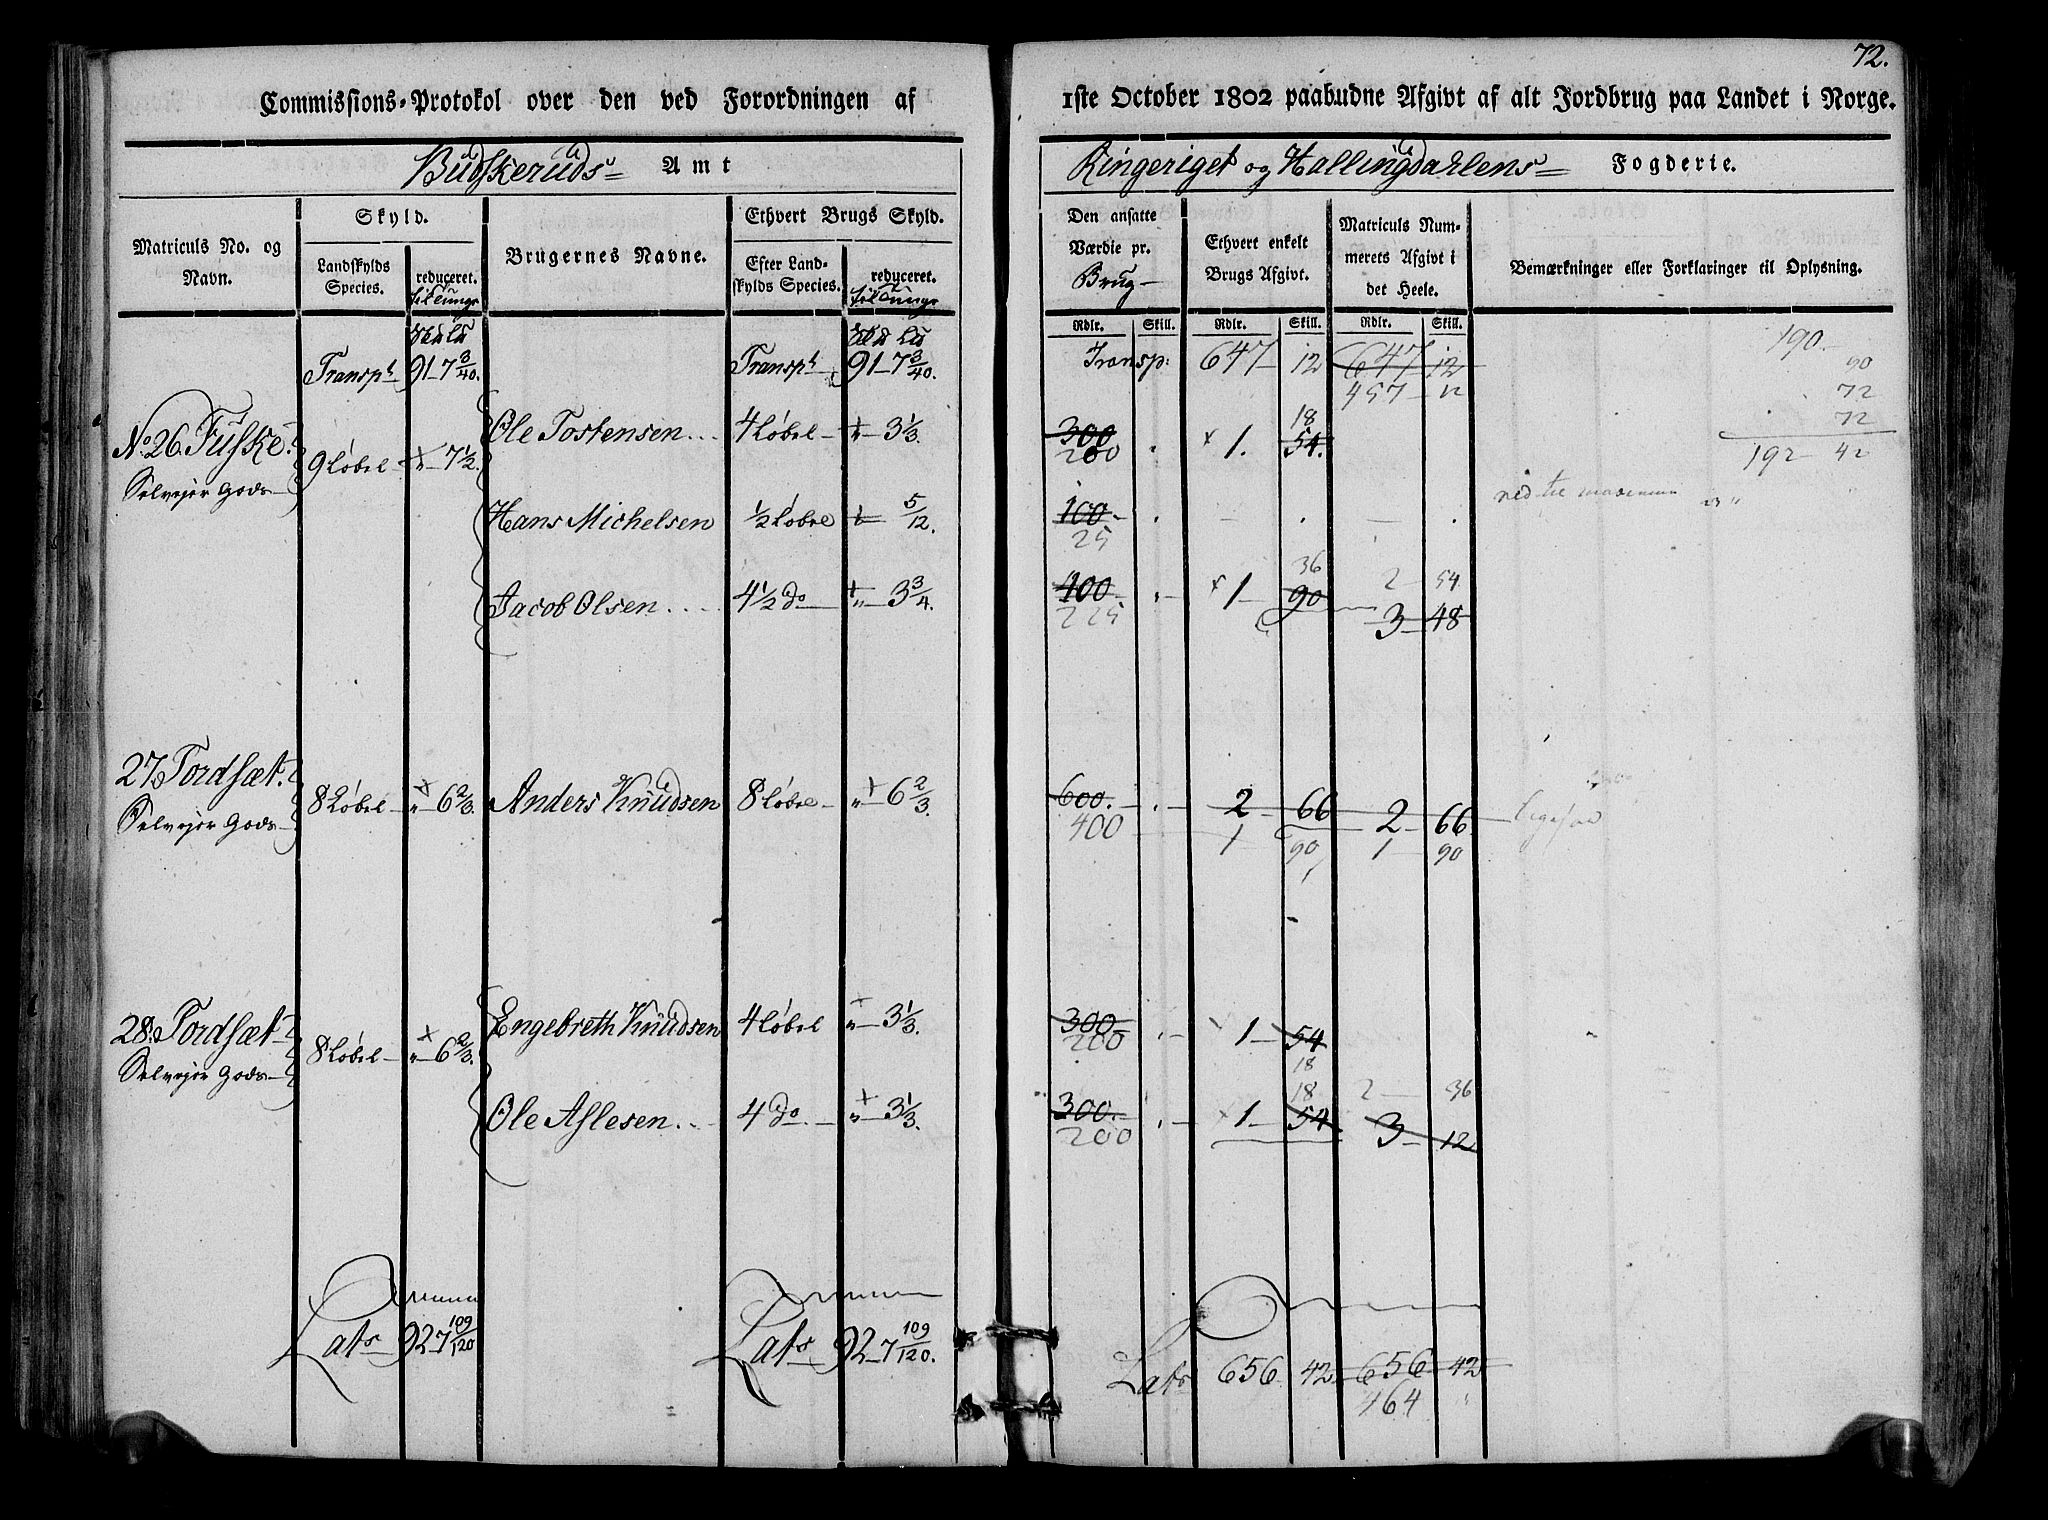 72.
Commissions-Protokol over den ved Forordningen af 1ste October 1802 paabudne Afgivt af alt Jordbrug paa Landet i Norge.
Budskeruds Amt
Ringeriget og Hallingdahlens Fogderie.
Matriculs No. og Navn.
Skyld.
Landskylds Species.
reduceret.
Brugernes Navne.
Ethvert Brugs Skyld.
Efter Landskylds Species.
reduceret.
Den ansatte Værdie pr. Brug
Ethvert enkelt Brugs Afgivt.
Matriculs Nummerets Afgivt i det Heele.
Bemærkninger eller Forklaringer til Oplysning.
Rdlr. Skill. Rdlr. Skill. Rdlr. Skill.
Transpt 91-7 3/40. Transpt 91-7 3/40. Transp: 647 12 647 12
457 12
190.
90
72
72
192 42
No. 26. Fuske. 9 Løbel 7 1/2. Ole Tostensen 4 Løbel 3 1/3. 300 1. 54.
Selvejer Gods 200 18
Hans Michelsen 1/2 Løbel 5/12. 100
25
ned til
Jacob Olsen 4 1/2 do 3 3/4. 100 1 90 3 48
225 36 2 54
27. Tordsæt. 8 Løbel 6 2/3. Anders Knudsen 8 Løbel 6 2/3. 600. 2 66 2 66
Selvejer Gods 400 1 90 1 90
28. Tordsæt 8 Løbel 6 2/3. Engebreth Knudsen 4 Løbel 3 1/3. 300 1 54
Selvejer Gods 200 18
Ole Aslesen 4 do 3 1/3. 300. 1 54 3 12
200 18 2 36
Lats 92-7 109/120 Lats 92-7 109/120. Lats 656 42 656 42
464